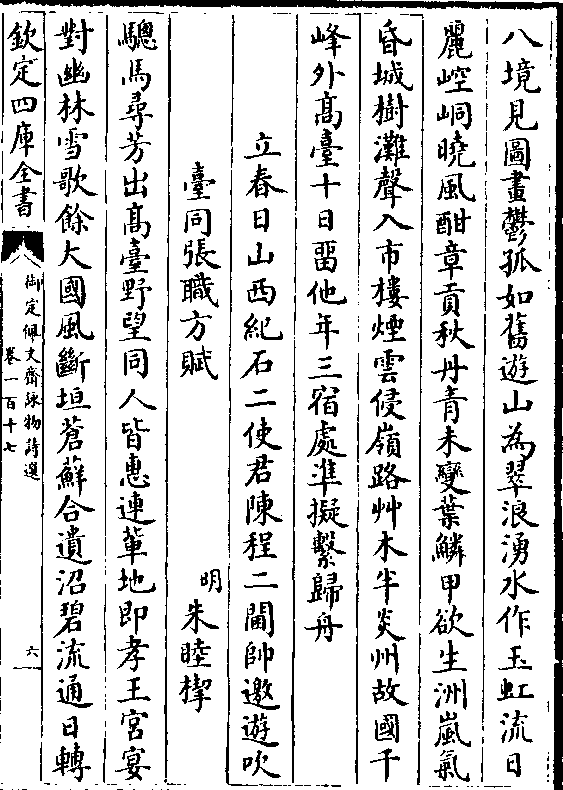 八境見圖畫鬱孤如舊遊山為翠浪湧水作玉虹流日
麗崆峒曉風酣章貢秋丹青未變葉鱗甲欲生洲嵐氣
昏城樹灘聲入市樓煙雲侵嶺路艸木半炎州故國千
峰外髙臺十日畱他年三宿處準擬繫歸舟
立春日山西紀石二使君陳程二閫帥邀遊吹
臺同張職方賦
明朱睦㮮
驄馬尋芳出髙臺野望同人皆惠連輩地即孝王宮宴
對幽林雪歌餘大國風斷垣蒼蘚合遺沼碧流通日轉
欽定四庫全書
御定佩文齋詠物詩選
卷一百十七
六